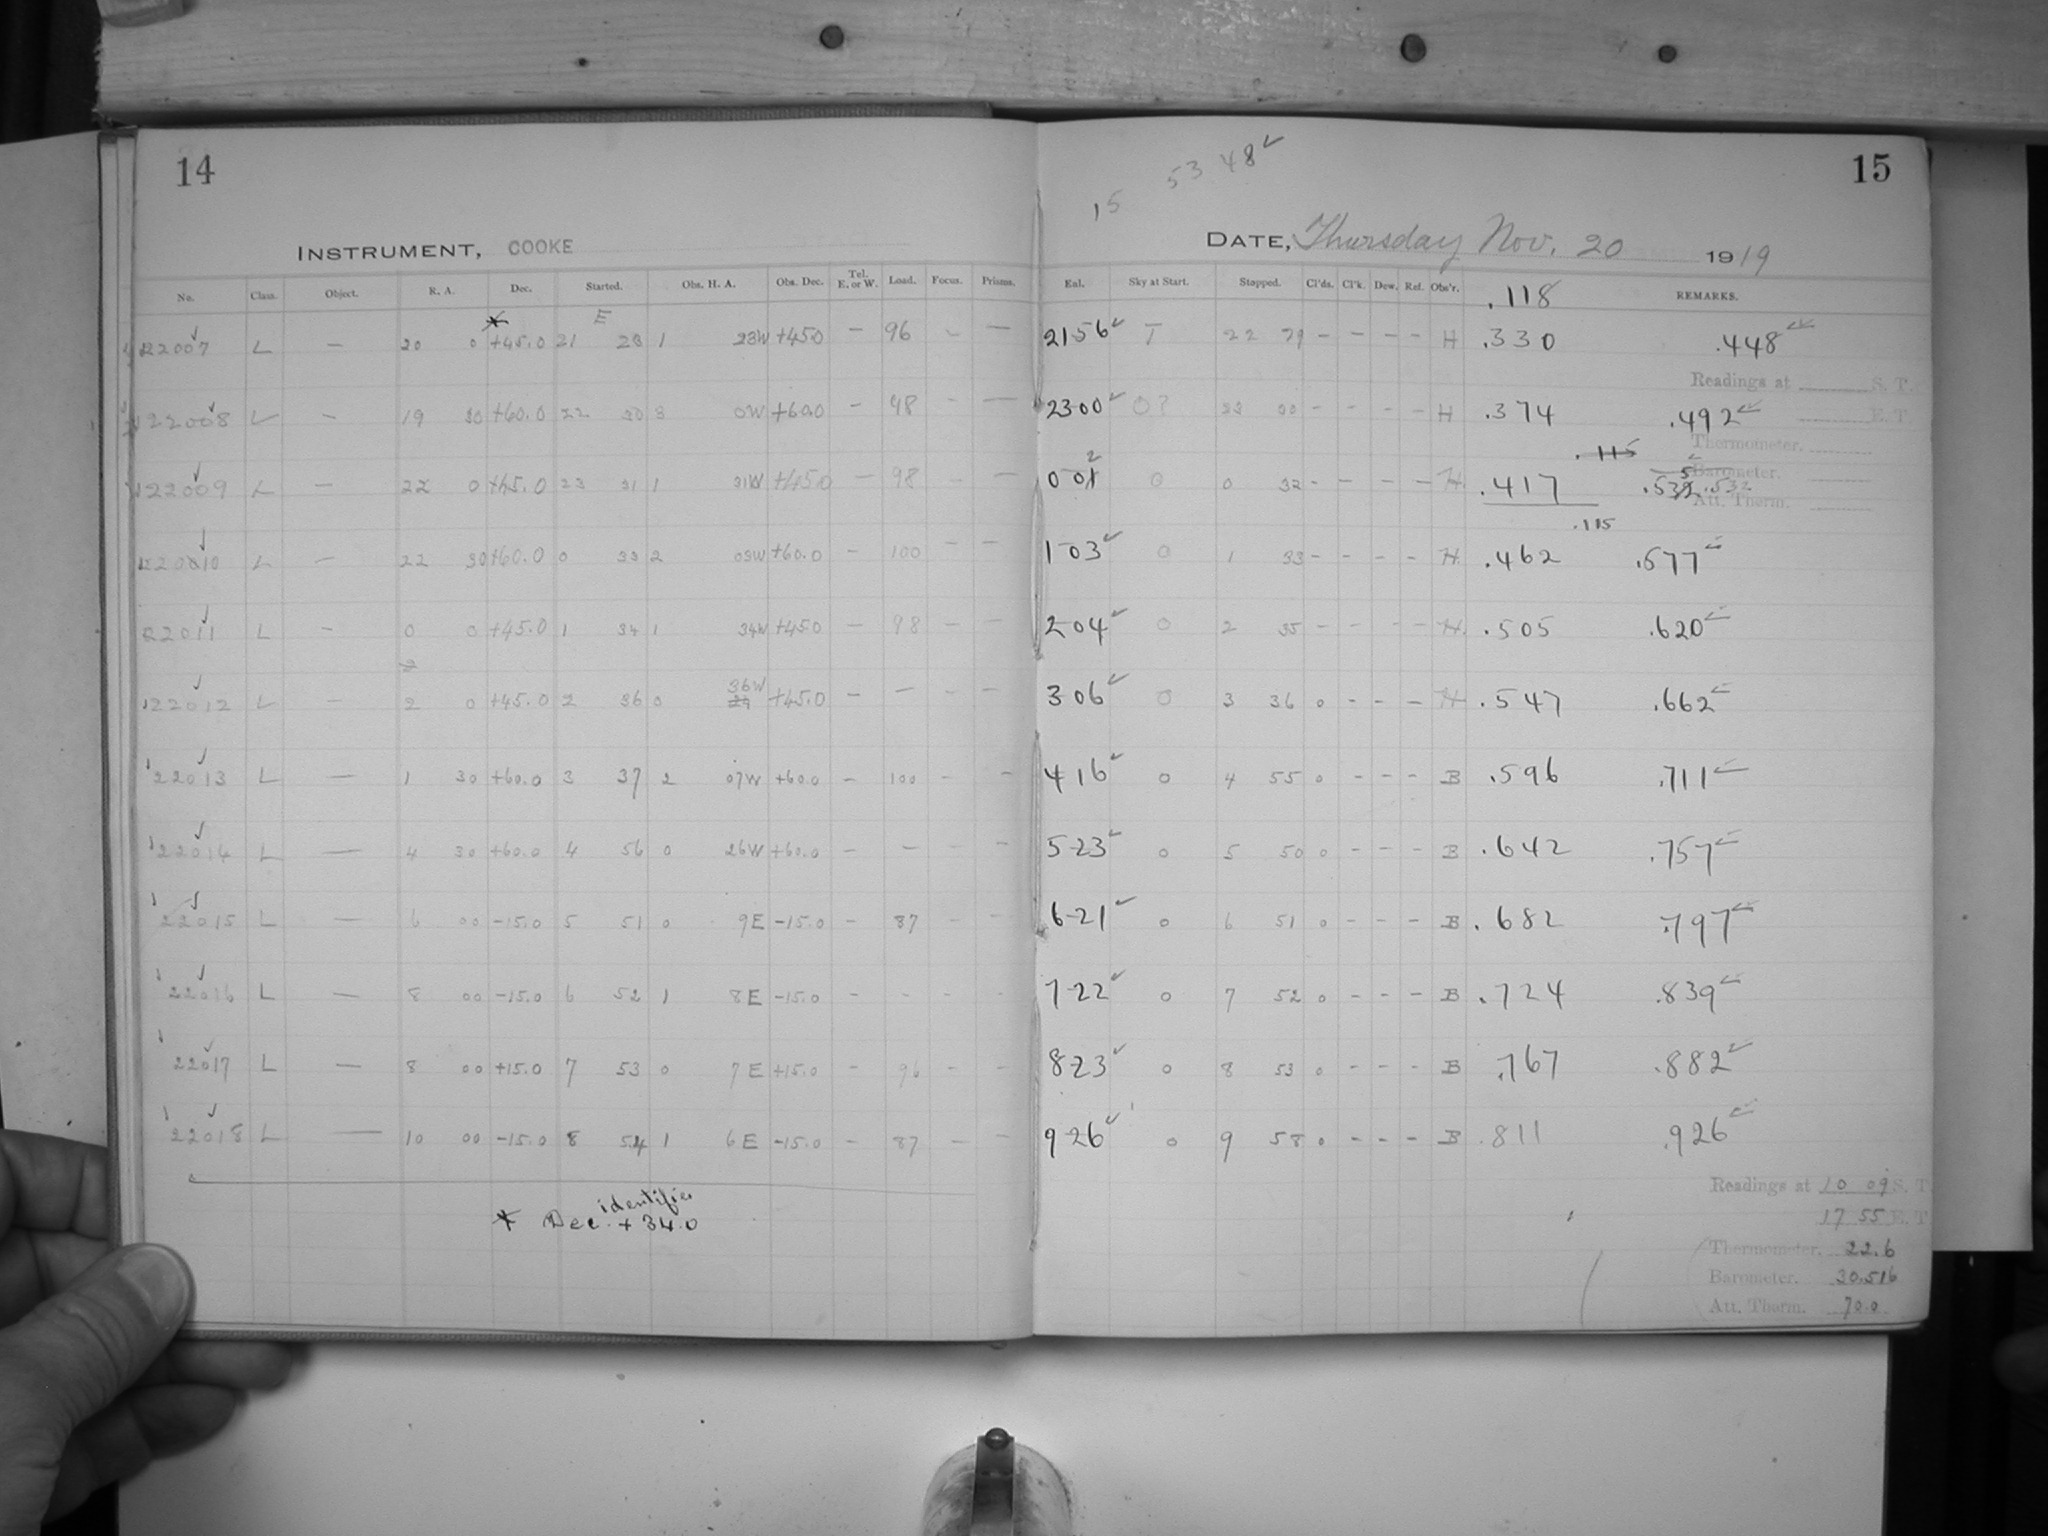 14
INSTRUMENT, COOKE
No. Class. Object. R. A. Dec. Started. Obs. H. A. Obs. Dec. Tel. E. or W. Load. Focus. Prisms.
E
22007 L — 20 0 +45.0 21 28 1 28W +45.0 — 96 — —
22008 L — 19 30 +60.0 22 30 3 0W +60.0 — 48 — —
22009 L — 22 0 +45.0 23 31 1 31W +45.0 — 98 — —
22010 L — 22 30 +60.0 0 33 2 03W +60.0 — 100 — —
22011 L — 0 0 +45.0 1 34 1 34W +45.0 — 98 — —
22012 L — 2 0 +45.0 2 36 0 36W +45.0 — — — —
22013 L — 1 30 +60.0 3 37 2 07W +60.0 — 100 — —
22014 L — 4 30 +60.0 4 56 0 26W +60.0 — — — —
22015 L — 6 00 -15.0 5 51 0 9E -15.0 — 87 — —
22016 L — 8 00 -15.0 6 52 1 8E -15.0 — — — —
22017 L — 8 00 +15.0 7 53 0 7E +15.0 — 96 — —
22018 L — 10 00 -15.0 8 54 1 6E -15.0 — 87 — —
identifies
* Dec. + 34.0
15 53 48 ✓
15
DATE, Thursday Nov. 20 1919
Eal. Sky at Start. Stopped. Cl'ds. Cl'k. Dew. Ref. Obs'r. .118 REMARKS.
21-56 ✓ T 22 29 — — — — H .330 .448 ✓
Readings at S. T.
23-00 ✓ O? 23 30 — — — — H .374 .492 ✓
E. T.
Thermometer.
.115
0-02 0 0 32 — — — — H. .417 .532
Barometer.
Att. Therm.
.115
1-03 ✓ 0 1 33 — — — — H. .462 .577 ✓
2-04 ✓ 0 2 35 — — — — H. .505 .620 ✓
3-06 ✓ 0 3 36 0 — — — H .547 .662 ✓
4-16 ✓ 0 4 55 0 — — — B .596 .711 ✓
5-23 ✓ 0 5 50 0 — — — B .642 .757 ✓
6-21 ✓ 0 6 51 0 — — — B .682 .797 ✓
7-22 ✓ 0 7 52 0 — — — B .724 .839 ✓
8-23 ✓ 0 8 53 0 — — — B .767 .882 ✓
9-26 ✓ 0 9 58 0 — — — B .811 .926 ✓
Readings at 10 09 S. T.
17 55 E. T.
Thermometer. 22.6
Barometer. 30.516
Att. Therm. 70.0